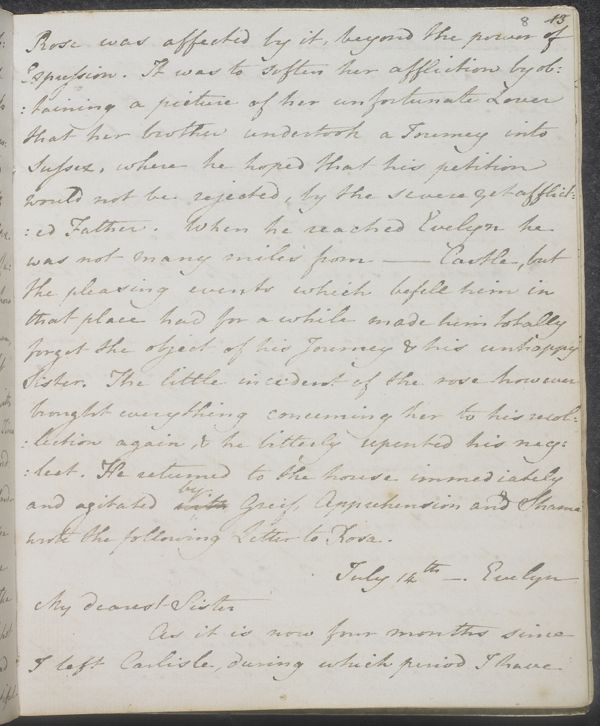 8 13
Rose was affected by it, beyond the power of
Expression. It was to soften her affliction by ob:
:taining a picture of her unfortunate Lover
that her brother undertook a Journey into
Sussex, where he hoped that his petition
would not be rejected, by the severe yet afflict:
:ed Father. When he reached Evelyn he
was not many miles from —— Castle, but
the pleasing events which befell him in
that place had for a while made him totally
forget the object of his Journey & his unhappy
Sister. The little incident of the rose however
brought everything concerning her to his recol:
:lection again, & he bitterly repented his neg:
:lect. He returned to the house immediately
and agitated by Greif, Apprehension and Shame
wrote the following Letter to Rosa.
July 14th —. Evelyn
My dearest Sister
As it is now four months since
I left Carlisle, during which period I have